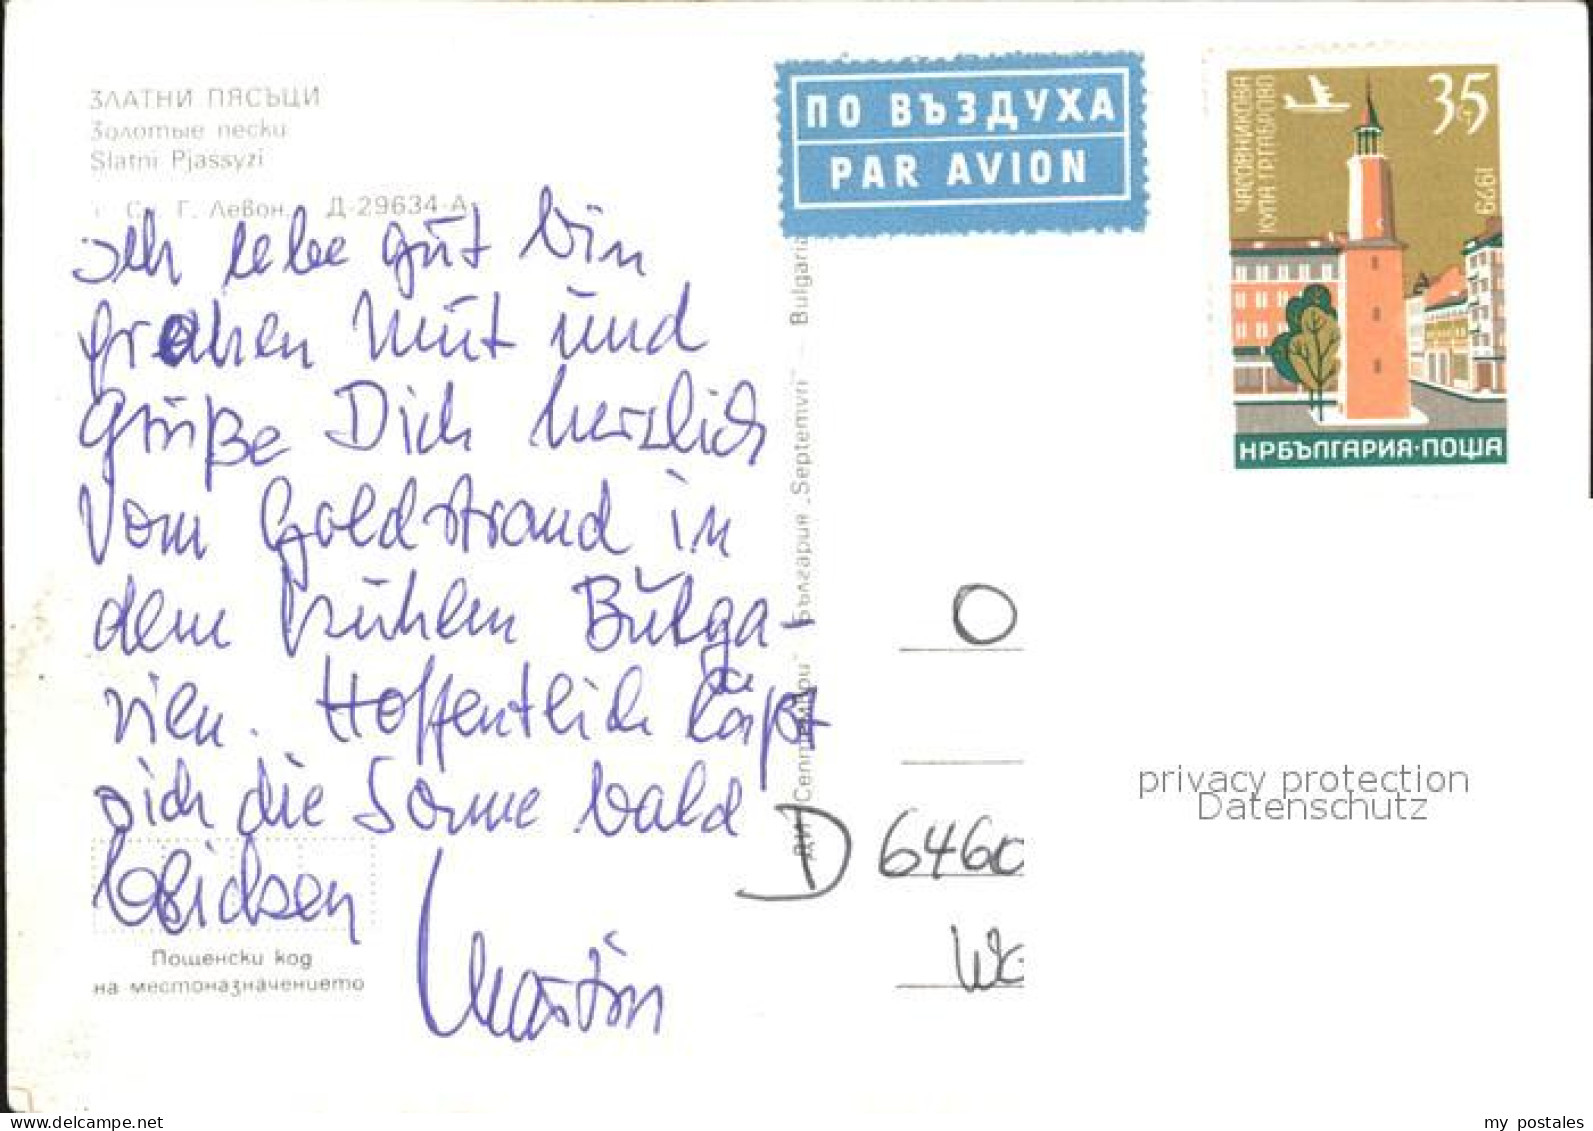 ЗЛАТНИ ПЯСЪЦИ
Золотые пески
Slatni Pjassyzi
Г. Левон. Д-29634-А
Ich lebe gut bin
frohen Mut und
Grüße Dich herzlich
vom Goldstrand in
dem kühlen Bulga-
rien. Hoffentlich läßt
sich die Sonne bald
blicksen
Martin
Пощенски код
на местоназначението
ДИ „Септември" България „Septemvri" Bulgaria
ПО ВЪЗДУХА
PAR AVION
ЧАСОВНИКОВА
КУЛА ГР.ГАБРОВО
35
1979
НРБЪЛГАРИЯ·ПОЩА
O
D 6460
privacy protection
Datenschutz
my postales
www.delcampe.net